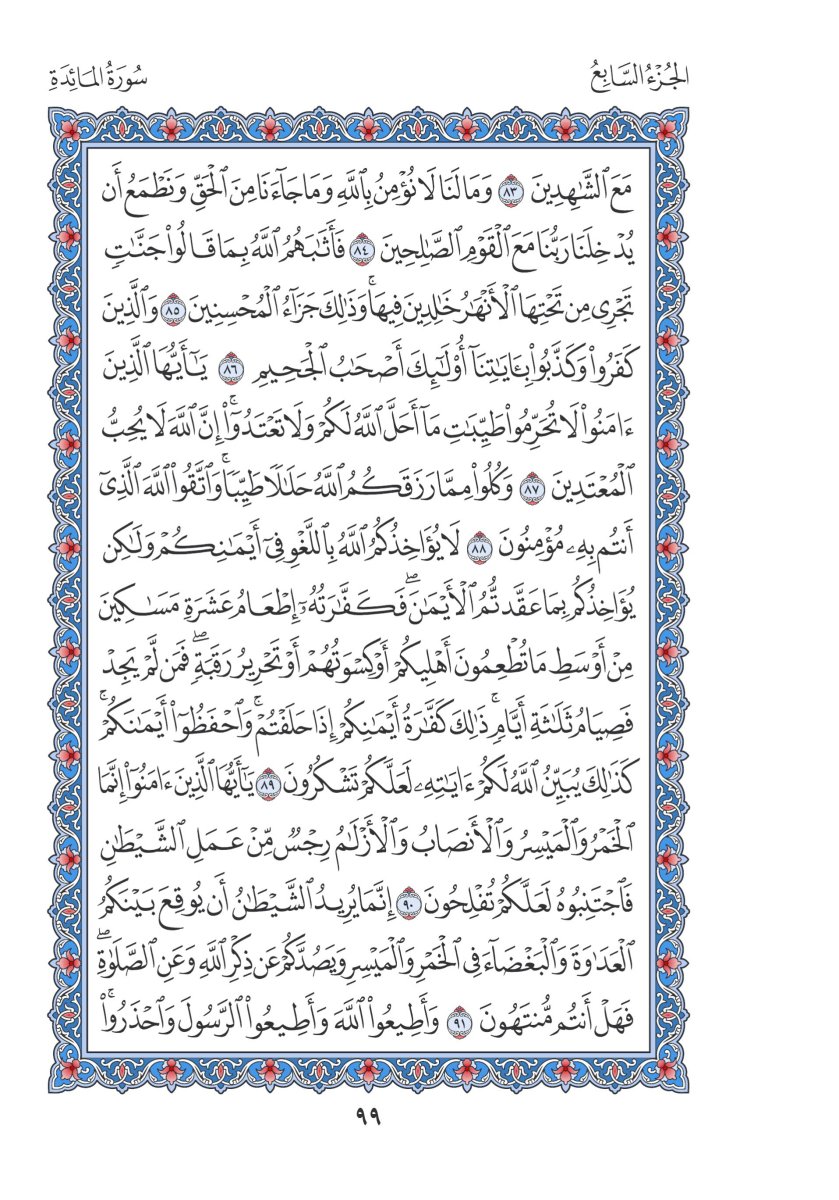 الجُزْءُ السَّابِعُ
سُورَةُ المَائِدَةِ
مَعَ ٱلشَّٰهِدِينَ ٨٣ وَمَا لَنَا لَا نُؤْمِنُ بِٱللَّهِ وَمَا جَآءَنَا مِنَ ٱلْحَقِّ وَنَطْمَعُ أَن
يُدْخِلَنَا رَبُّنَا مَعَ ٱلْقَوْمِ ٱلصَّٰلِحِينَ ٨٤ فَأَثَٰبَهُمُ ٱللَّهُ بِمَا قَالُوا۟ جَنَّٰتٍ
تَجْرِى مِن تَحْتِهَا ٱلْأَنْهَٰرُ خَٰلِدِينَ فِيهَا ۚ وَذَٰلِكَ جَزَآءُ ٱلْمُحْسِنِينَ ٨٥ وَٱلَّذِينَ
كَفَرُوا۟ وَكَذَّبُوا۟ بِـَٔايَٰتِنَآ أُو۟لَٰٓئِكَ أَصْحَٰبُ ٱلْجَحِيمِ ٨٦ يَٰٓأَيُّهَا ٱلَّذِينَ
ءَامَنُوا۟ لَا تُحَرِّمُوا۟ طَيِّبَٰتِ مَآ أَحَلَّ ٱللَّهُ لَكُمْ وَلَا تَعْتَدُوٓا۟ ۚ إِنَّ ٱللَّهَ لَا يُحِبُّ
ٱلْمُعْتَدِينَ ٨٧ وَكُلُوا۟ مِمَّا رَزَقَكُمُ ٱللَّهُ حَلَٰلًا طَيِّبًا ۚ وَٱتَّقُوا۟ ٱللَّهَ ٱلَّذِىٓ
أَنتُم بِهِۦ مُؤْمِنُونَ ٨٨ لَا يُؤَاخِذُكُمُ ٱللَّهُ بِٱللَّغْوِ فِىٓ أَيْمَٰنِكُمْ وَلَٰكِن
يُؤَاخِذُكُم بِمَا عَقَّدتُّمُ ٱلْأَيْمَٰنَ ۖ فَكَفَّٰرَتُهُۥٓ إِطْعَامُ عَشَرَةِ مَسَٰكِينَ
مِنْ أَوْسَطِ مَا تُطْعِمُونَ أَهْلِيكُمْ أَوْ كِسْوَتُهُمْ أَوْ تَحْرِيرُ رَقَبَةٍ ۖ فَمَن لَّمْ يَجِدْ
فَصِيَامُ ثَلَٰثَةِ أَيَّامٍ ۚ ذَٰلِكَ كَفَّٰرَةُ أَيْمَٰنِكُمْ إِذَا حَلَفْتُمْ ۚ وَٱحْفَظُوٓا۟ أَيْمَٰنَكُمْ ۚ
كَذَٰلِكَ يُبَيِّنُ ٱللَّهُ لَكُمْ ءَايَٰتِهِۦ لَعَلَّكُمْ تَشْكُرُونَ ٨٩ يَٰٓأَيُّهَا ٱلَّذِينَ ءَامَنُوٓا۟ إِنَّمَا
ٱلْخَمْرُ وَٱلْمَيْسِرُ وَٱلْأَنصَابُ وَٱلْأَزْلَٰمُ رِجْسٌ مِّنْ عَمَلِ ٱلشَّيْطَٰنِ
فَٱجْتَنِبُوهُ لَعَلَّكُمْ تُفْلِحُونَ ٩٠ إِنَّمَا يُرِيدُ ٱلشَّيْطَٰنُ أَن يُوقِعَ بَيْنَكُمُ
ٱلْعَدَٰوَةَ وَٱلْبَغْضَآءَ فِى ٱلْخَمْرِ وَٱلْمَيْسِرِ وَيَصُدَّكُمْ عَن ذِكْرِ ٱللَّهِ وَعَنِ ٱلصَّلَوٰةِ ۖ
فَهَلْ أَنتُم مُّنتَهُونَ ٩١ وَأَطِيعُوا۟ ٱللَّهَ وَأَطِيعُوا۟ ٱلرَّسُولَ وَٱحْذَرُوا۟ ۚ
٩٩